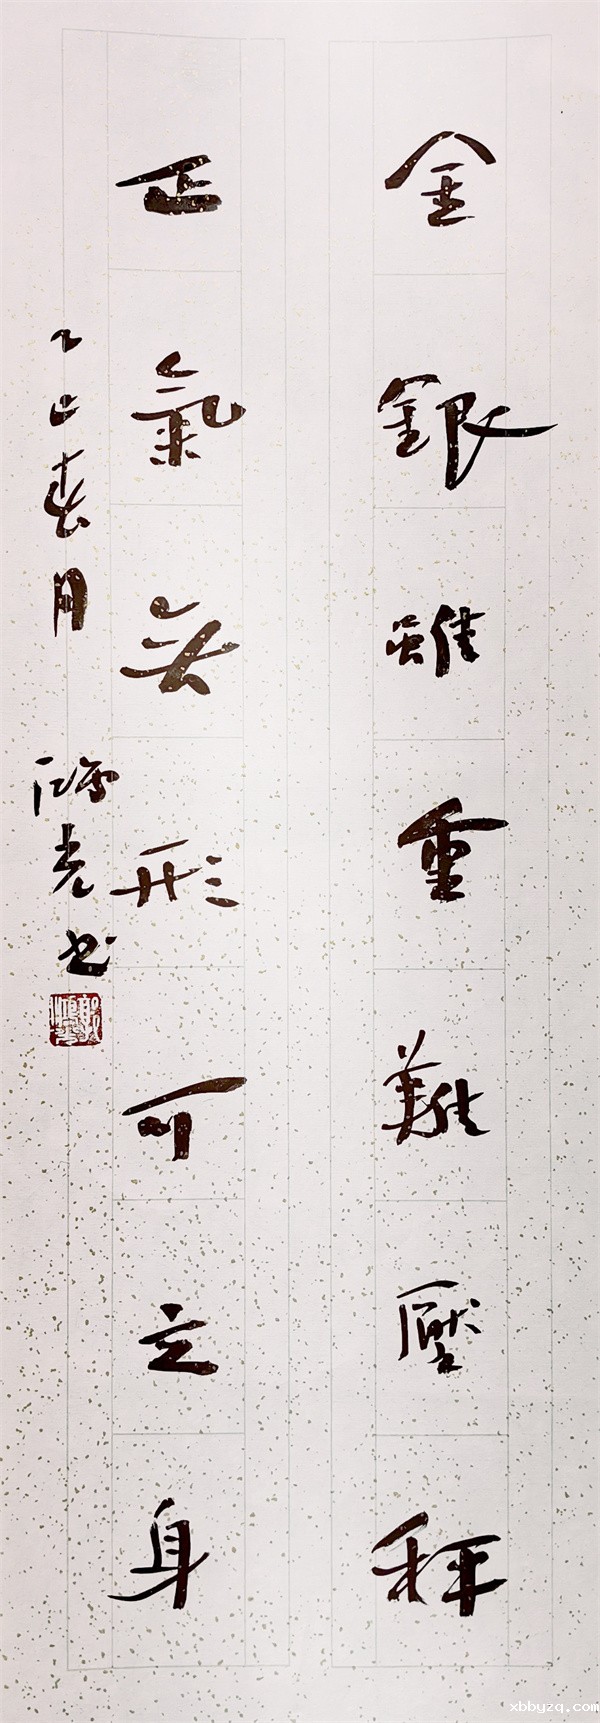 金銀雖重難壓秤
正氣无形可立身
乙巳春月
光书
xbbyzq.com